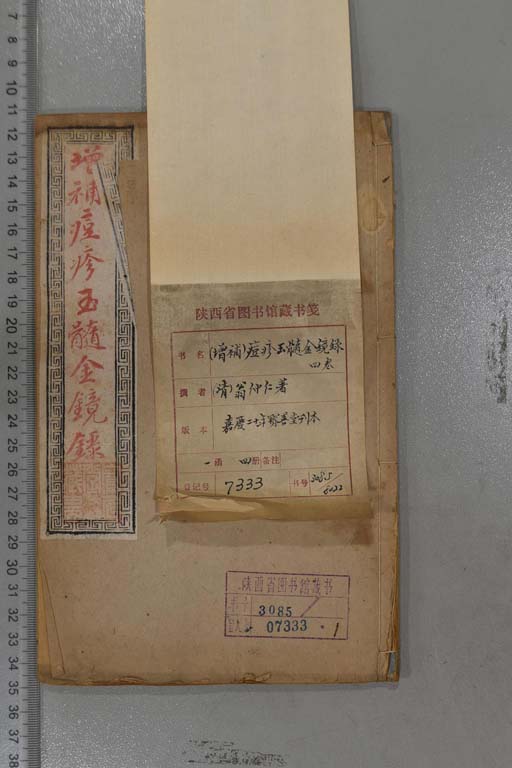 增補痘疹玉髓金鏡錄
陕西省图书馆藏书笺
书名 (增補)痘疹玉髓金鏡錄
四卷
撰者 (清)翁仲仁著
版本
一函 四册 备注
登记号 7333 书号 3085/
陕西省图书馆藏书
3085
07333 1
7
8
9
10
11
12
13
14
15
16
17
18
19
20
21
22
23
24
25
26
27
28
29
30
31
32
33
34
35
36
37
38